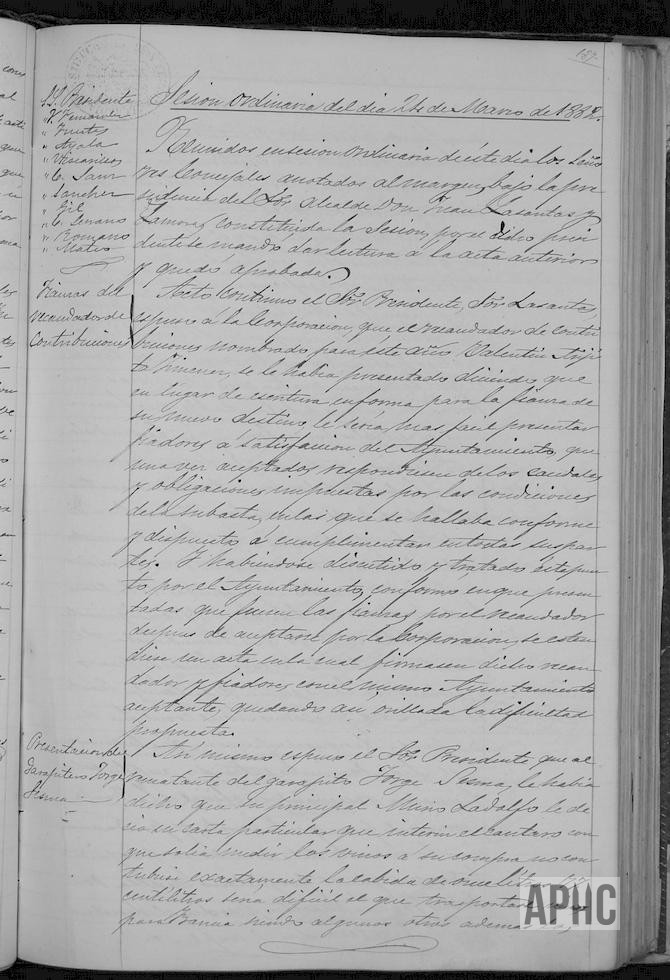 157
Sesion ordinaria del dia 24 de Marzo de 1882.
SS. Presidente
" Fernandez
" Frutos
" Ayala
" C. Sanz
" Sanchez
" Gil
" C. Serrano
" Romano
" Mateo
Reunidos en sesion ordinaria de éste dia los Seño
res Concejales anotados al margen, bajo la pre
sidencia del Sor. Alcalde Don Juan Lasantas y
Zamora, Constituida la Sesion, por el dicho presi
dente se mandó dar lectura a la acta anterior
y quedó aprobada.
Fianzas del
recaudador de
Contribuciones
Acto continuo el Sor. Presidente, Sor. Lasanta,
espuso á la Corporacion, que el recaudador de contri
buciones nombrado para éste año Valentin
to Jimenez, se le habia presentado diciendo que
en lugar de escritura en forma para la fianza de
su nuevo destino, le seria mas facil presentar
fiadores á satisfaccion del Ayuntamiento, que
una vez aceptados respondiesen de los caudales
y obligaciones impuestas por las condiciones
de la subasta, en las que se hallaba conforme
y dispuesto a cumplimentar en todas sus par
tes. Y habiendose discutido y tratado éste pun
to por el Ayuntamiento, conformó en que presen
tadas que fuesen las fianzas por el recaudador
despues de aceptarse por la Corporacion, se esten
diese un acta en la cual firmasen dicho recau
dador y fiadores con el mismo Ayuntamiento
aceptante, quedando asi orillada la dificultad
propuesta.
Presentacion del
Garapitero Jorge
Sesma
Asi mismo espuso el Sor. Presidente, que el
rematante del garapito Jorge Sesma, le habia
dicho que su principal Ladolfo le de
cia en carta particular que interin el cantaro con
que solia medir los vinos á su compra no con
tubiese exactamente la cabida de once litros
centilitros sera dificil el que trasportase
para Francia siendo algunos otros ademas
APHC